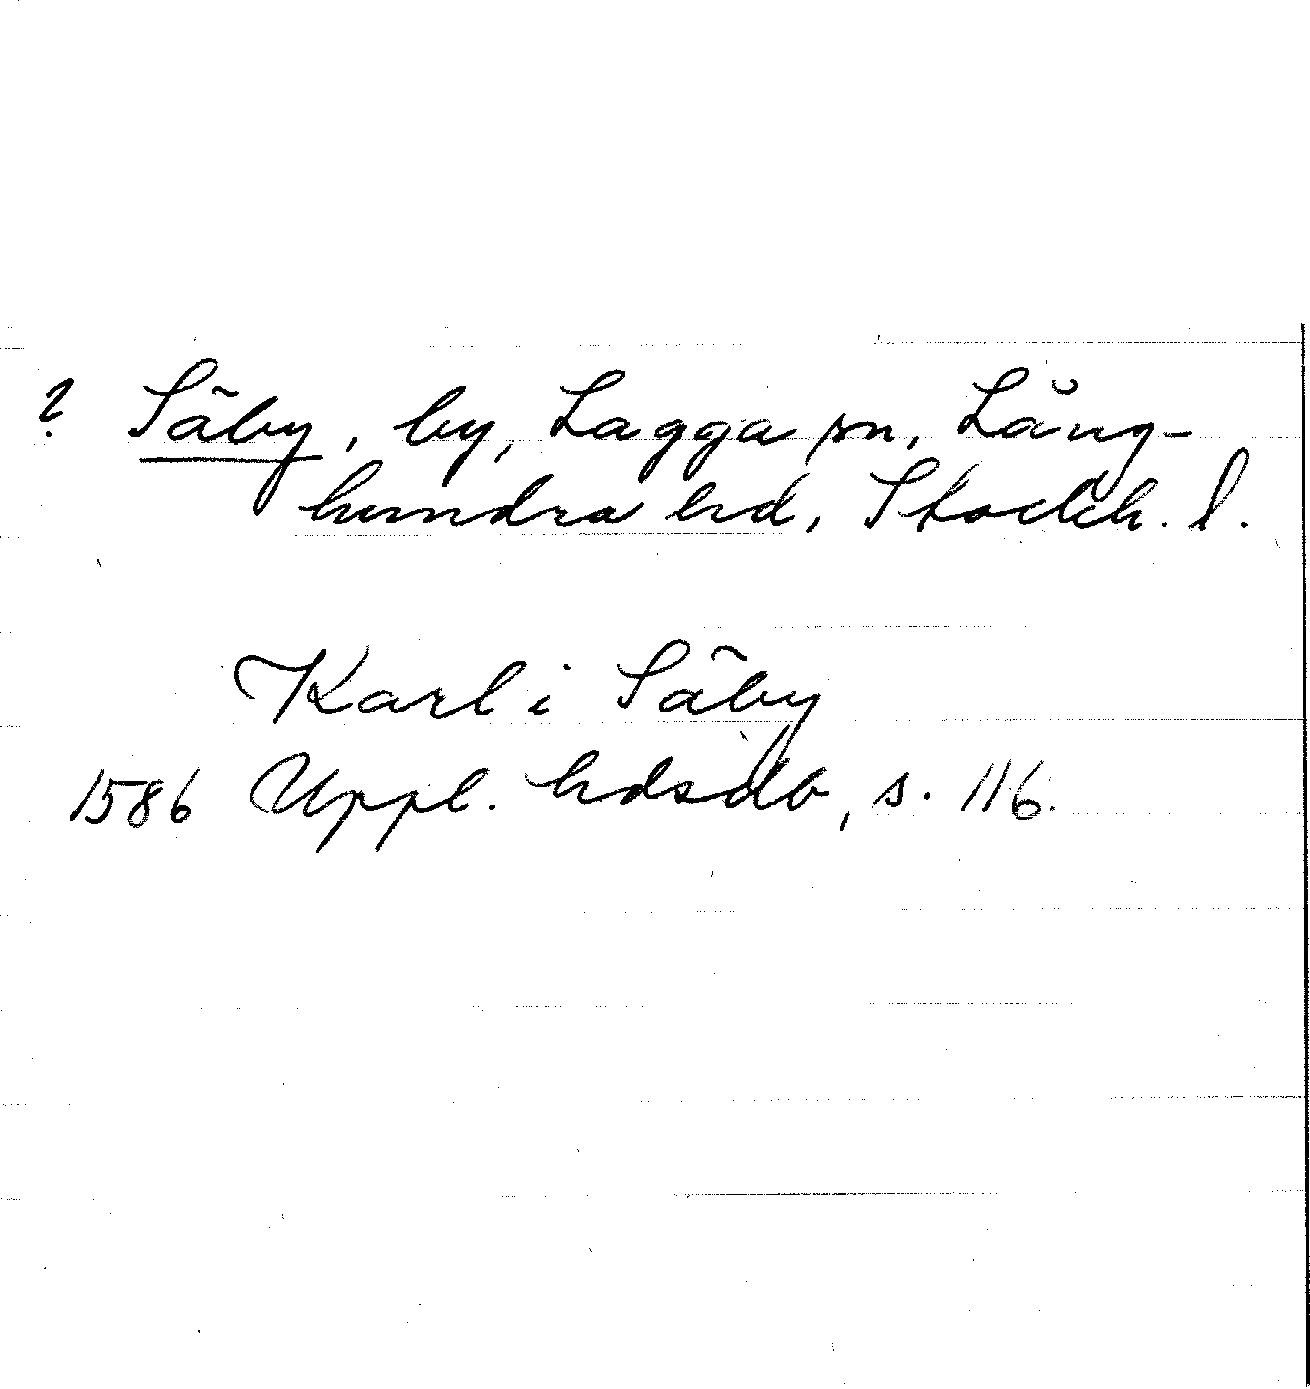 ? Säby, by, Lagga sn, Lång-
hundra hd, Stockh. l.
Karl i Säby
1586 Uppl. hdsdb, s. 116.